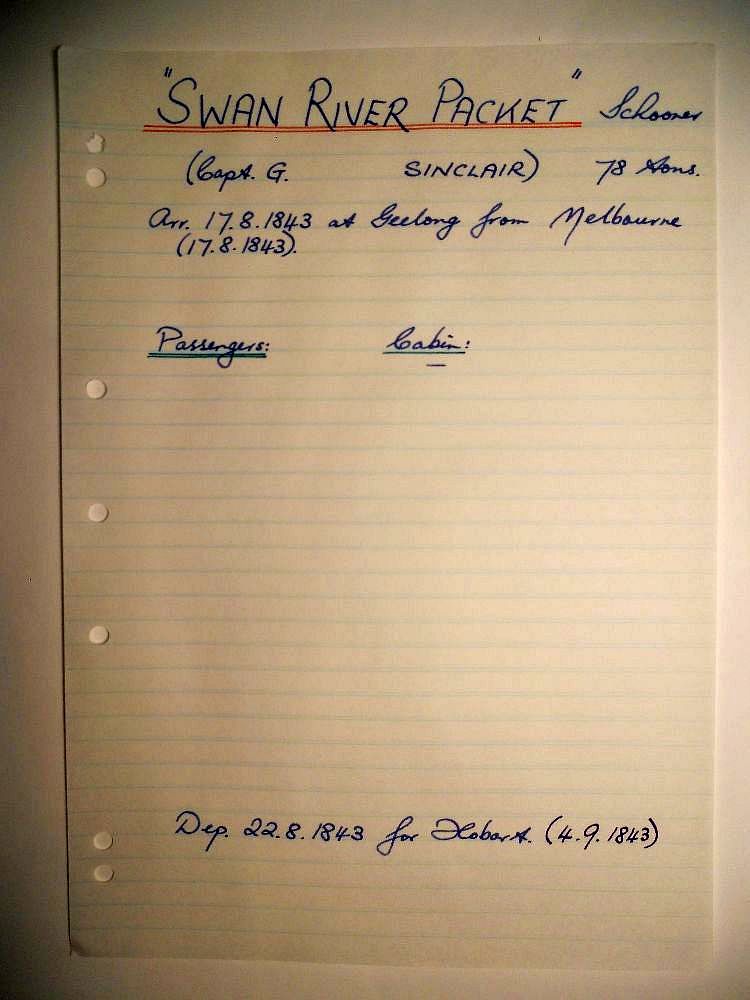 "SWAN RIVER PACKET" Schooner
(Capt. G. SINCLAIR) 78 tons.
Arr. 17.8.1843 at Geelong from Melbourne
(17.8.1843).
Passengers: Cabin:
—
Dep. 22.8.1843 for Hobart. (4.9.1843)